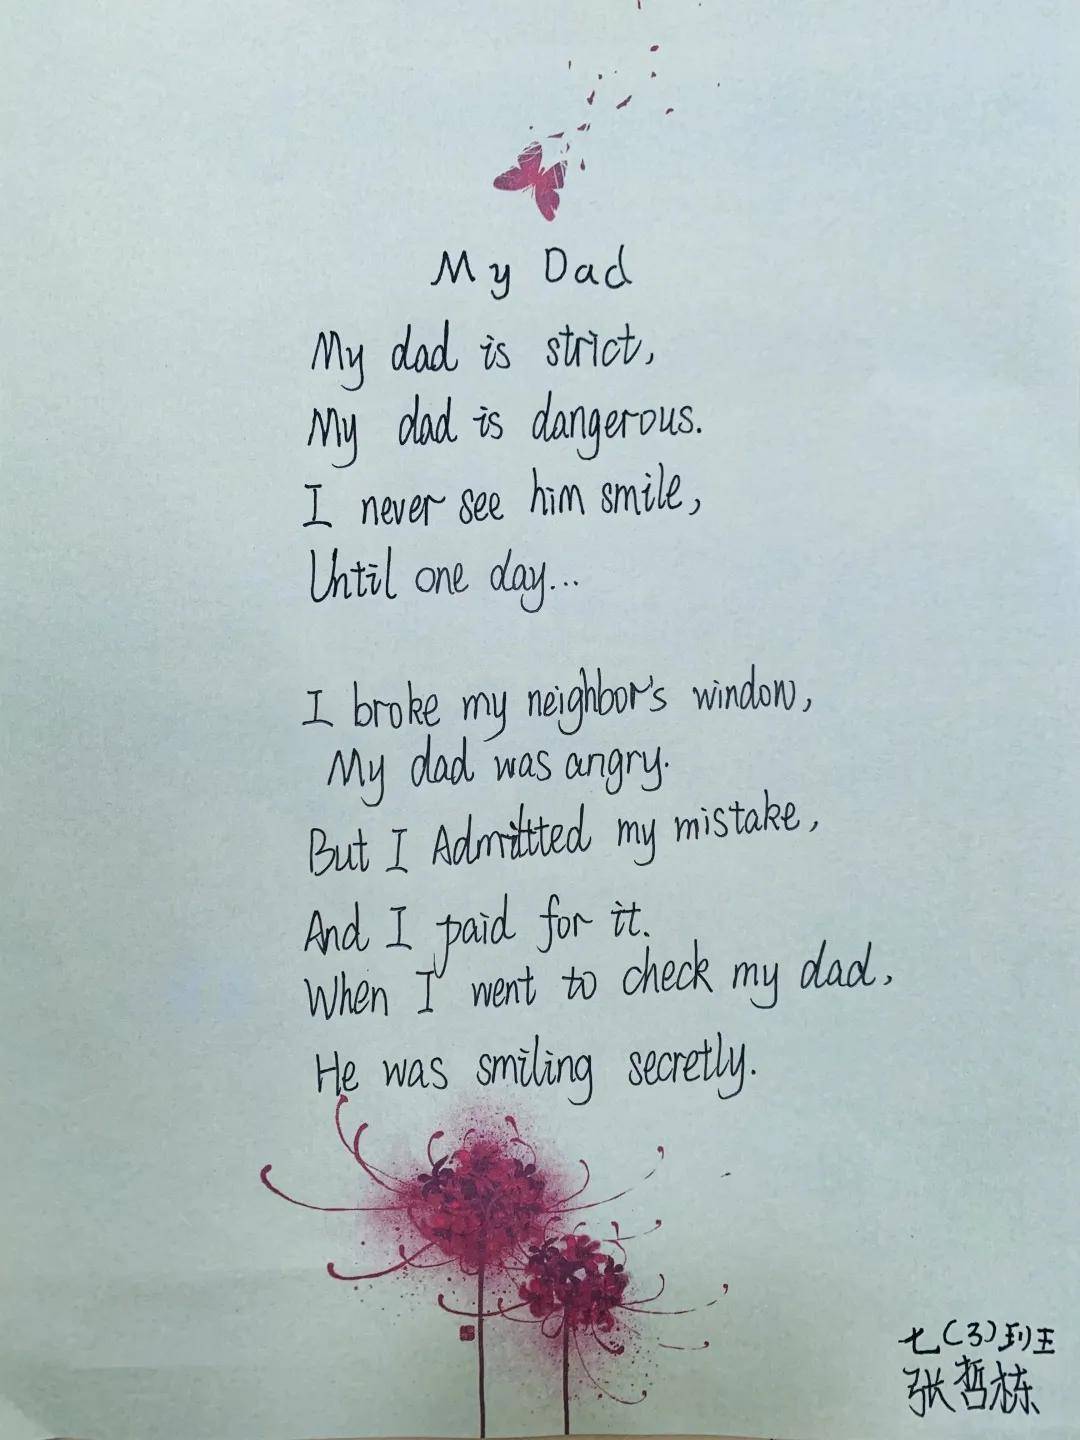 My Dad
My dad is strict,
My dad is dangerous.
I never see him smile,
Until one day...
I broke my neighbor's window,
My dad was angry.
But I Admitted my mistake,
And I paid for it.
When I went to check my dad,
He was smiling secretly.
七(3)班
张哲栋